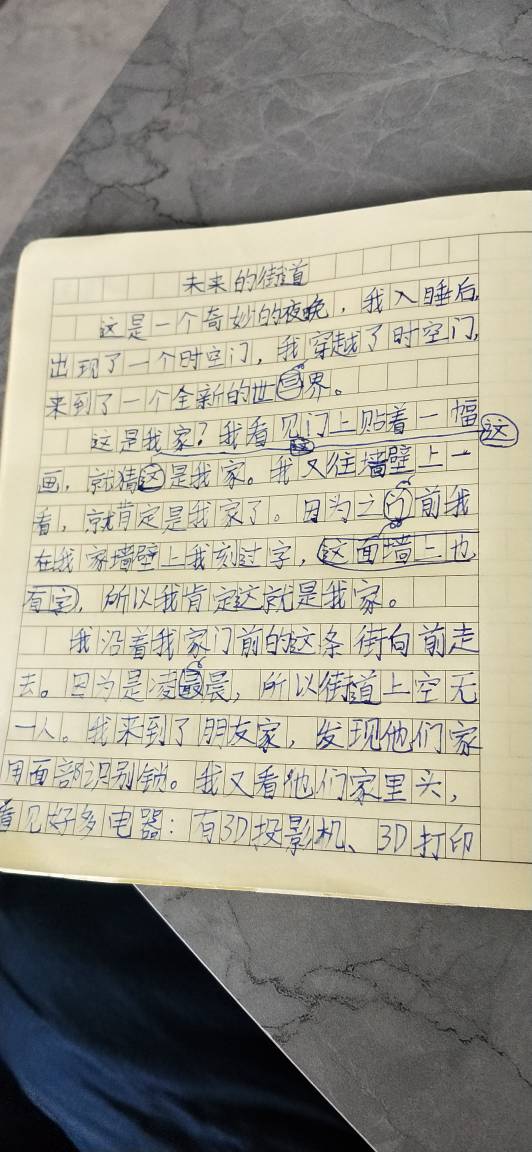 未来的街道
这是一个奇妙的夜晚，我入睡后，
出现了一个时空门，我穿越了时空门，
来到了一个全新的世界。
这是我家？我看见门上贴着一幅
画，就猜这是我家。我又往墙壁上一
看，就肯定是我家了。因为之前我
在我家墙壁上我刻过字，这面墙上也
有字，所以我肯定这就是我家。
我沿着我家门前的这条街向前走
去。因为是凌晨，所以街道上空无
一人。我来到了朋友家，发现他们家
用面部识别锁。我又看他们家里头，
看见好多电器：有3D投影机、3D打印